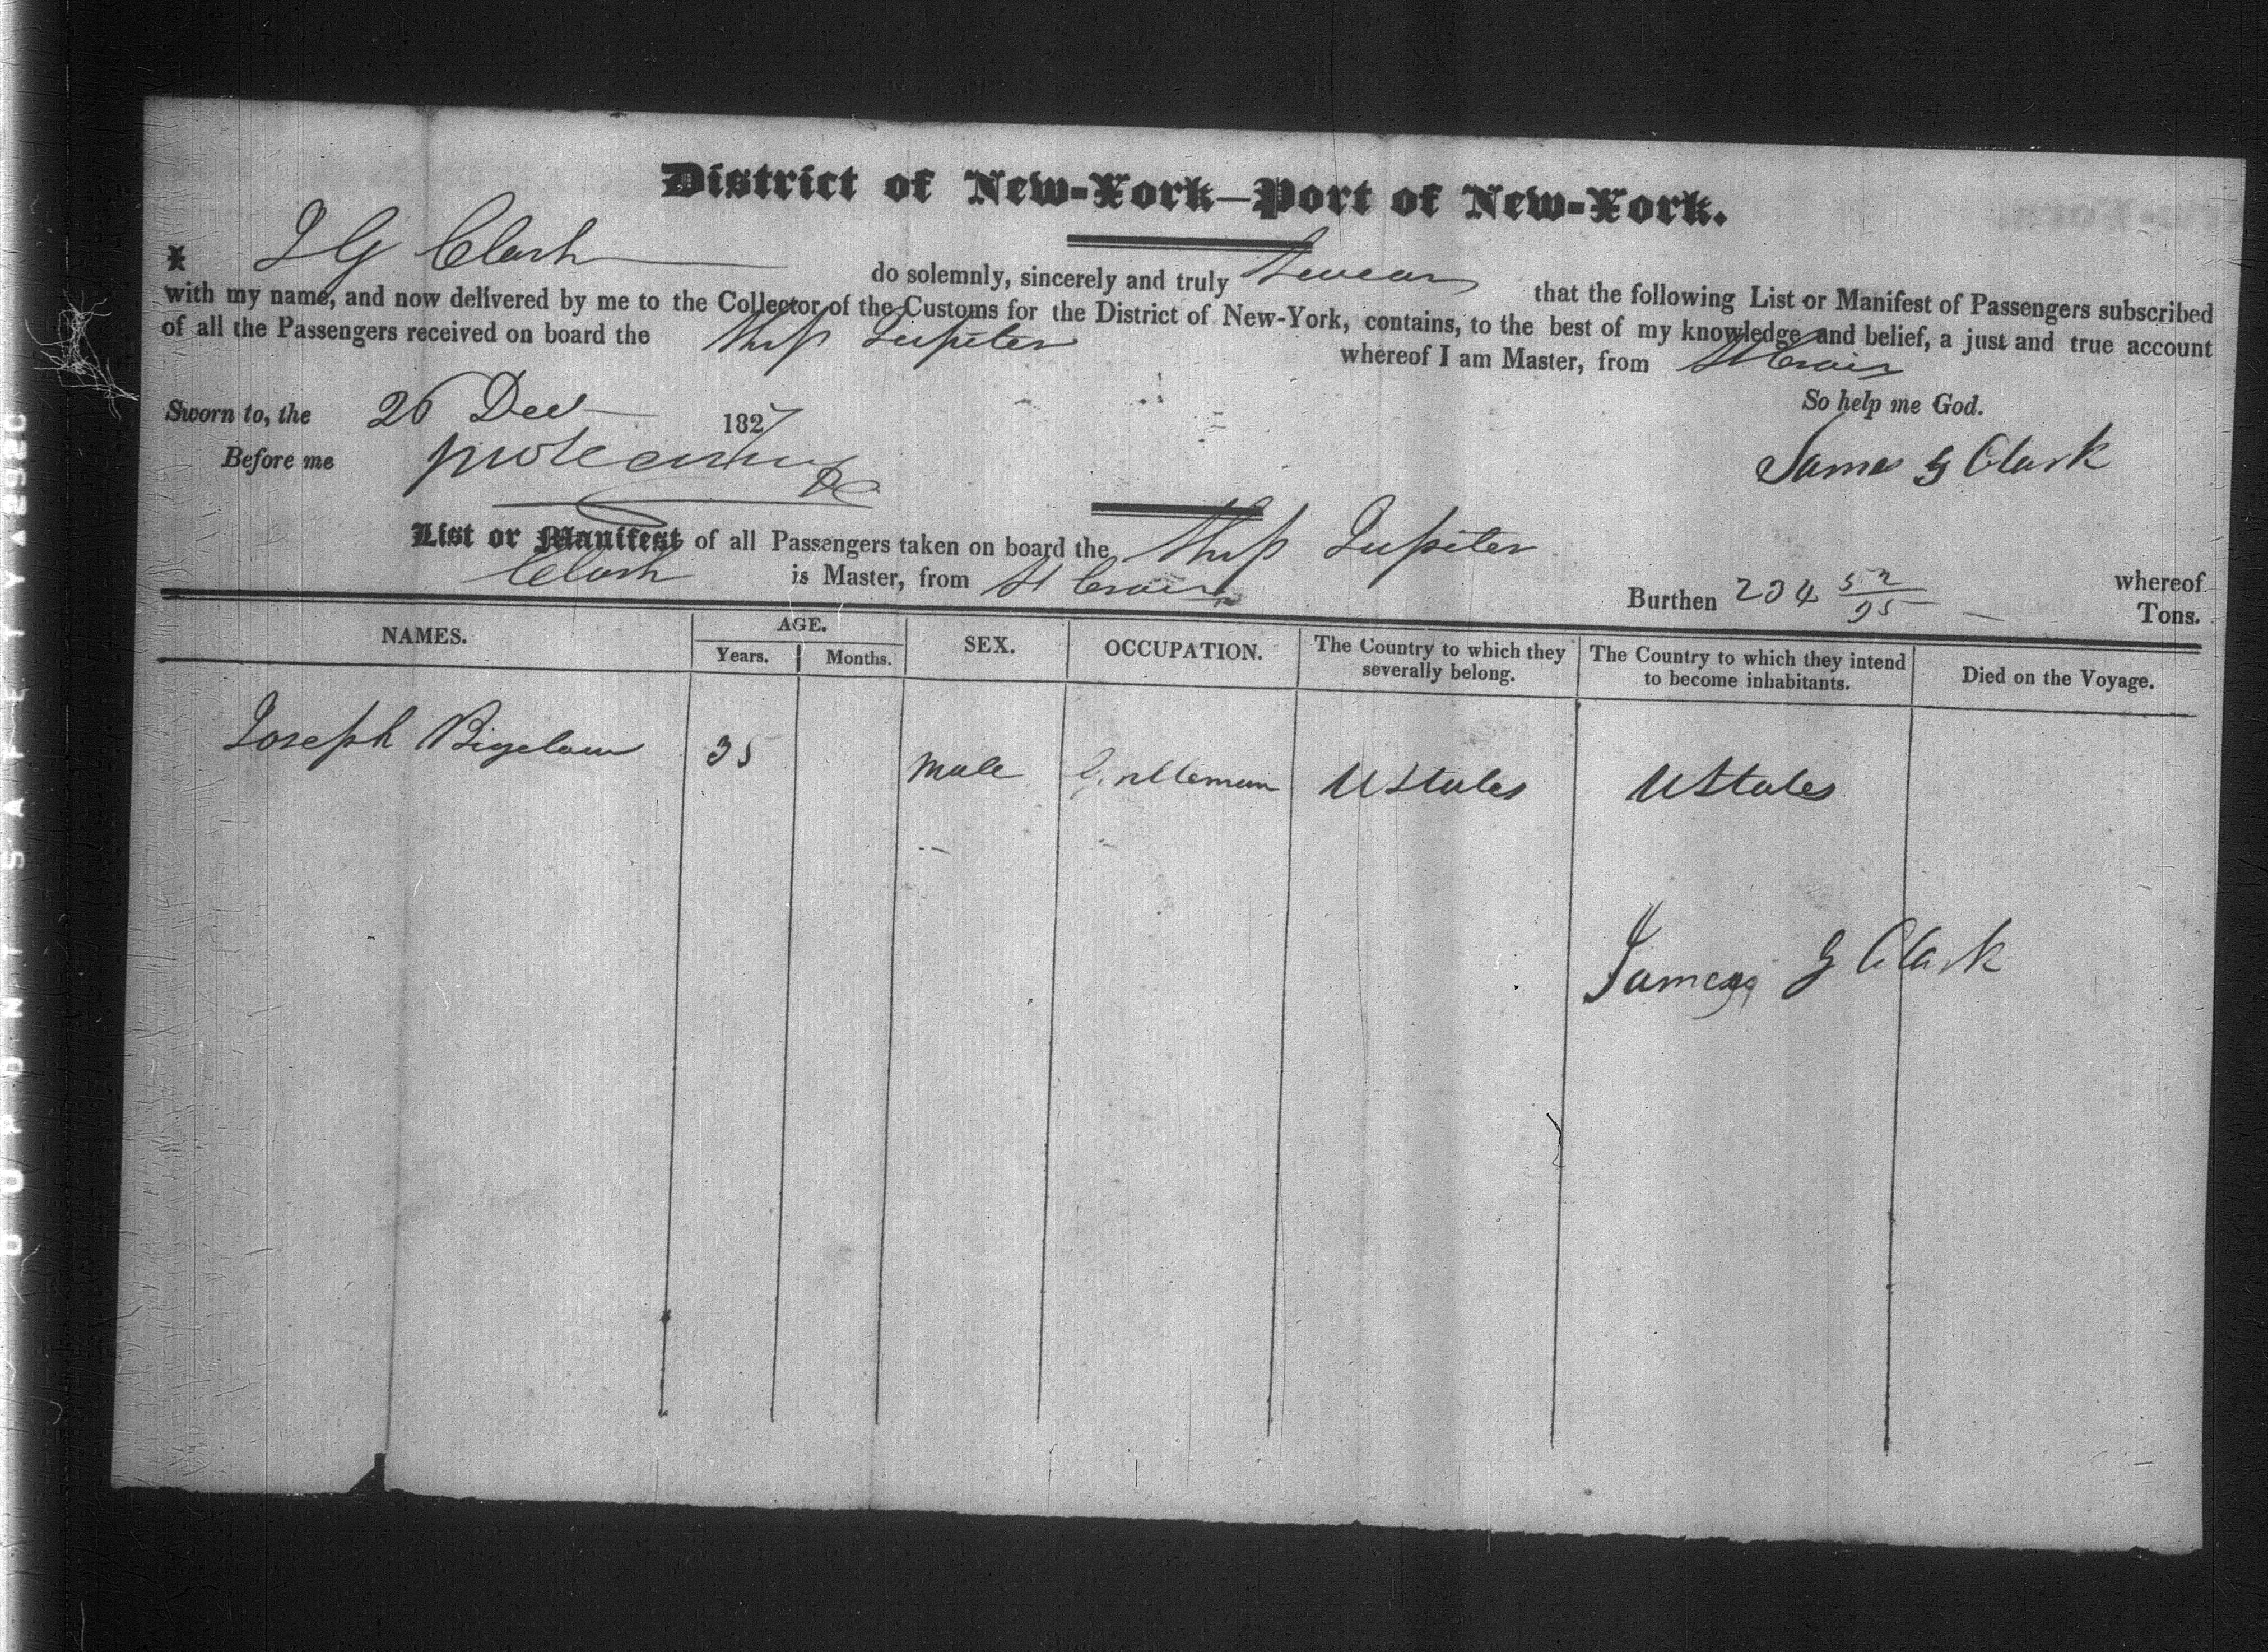 District of New-York—Port of New-York.
I J G Clark do solemnly, sincerely and truly Swear that the following List or Manifest of Passengers subscribed
with my name, and now delivered by me to the Collector of the Customs for the District of New-York, contains, to the best of my knowledge and belief, a just and true account
of all the Passengers received on board the Ship Jupiter whereof I am Master, from St Croix
So help me God.
Sworn to, the 26 Dec 1827
Before me
James G Clark
List or Manifest of all Passengers taken on board the Ship Jupiter whereof
Clark is Master, from St Croix Burthen 234 52/95 Tons.
NAMES. AGE. SEX. OCCUPATION. The Country to which they severally belong. The Country to which they intend to become inhabitants. Died on the Voyage.
Years. Months.
Joseph Bigelow 35 Male Gentleman U States U States
James G Clark
SAFETY